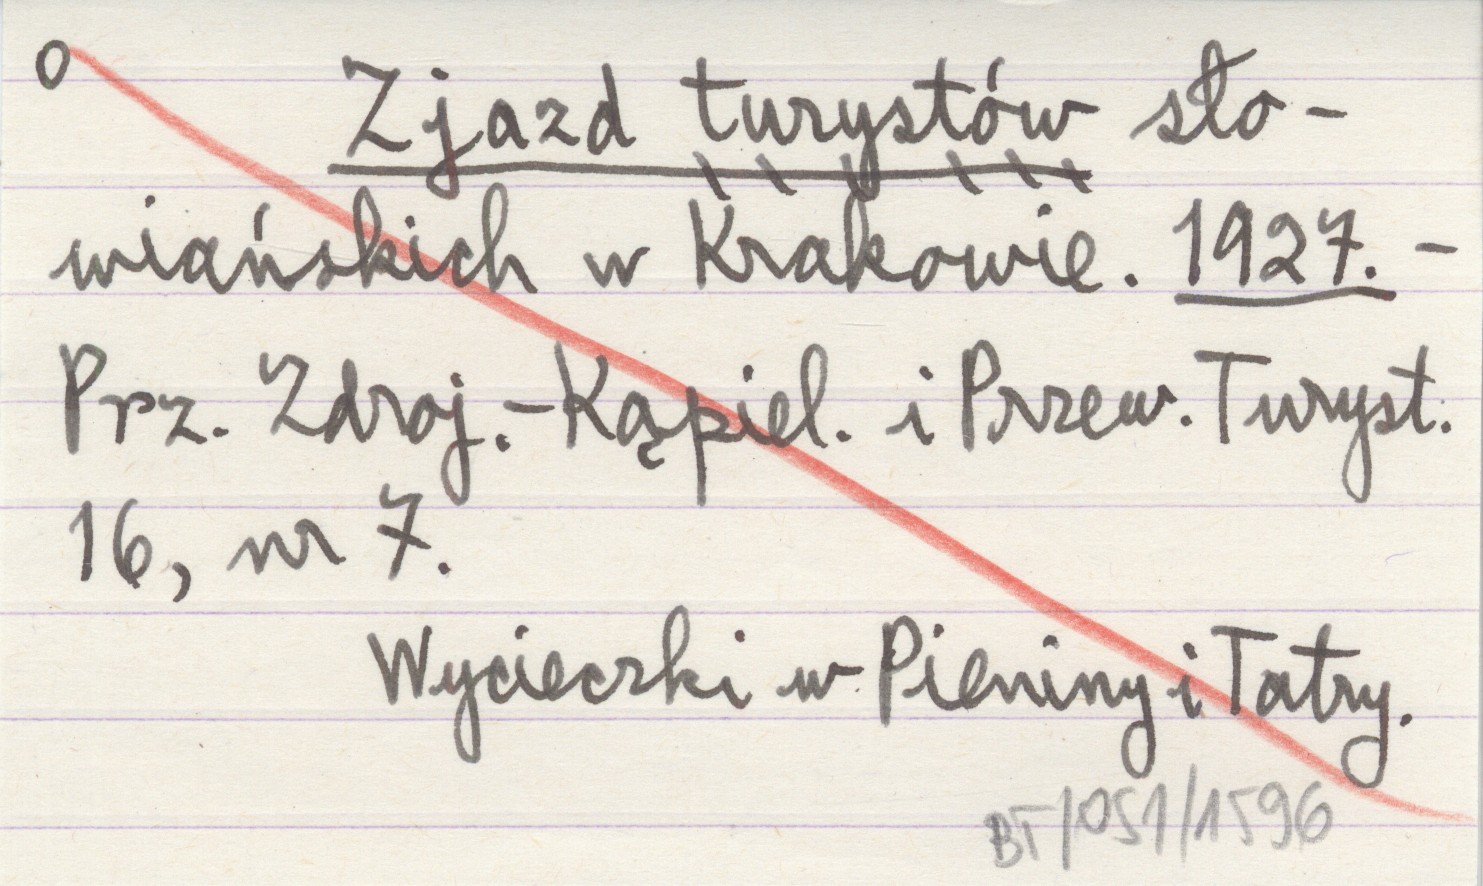 o Zjazd turystów sło-
wiańskich w Krakowie. 1927. -
Prz. Zdroj.-Kąpiel. i Przew. Turyst.
16, nr 7.
Wycieczki w Pieniny i Tatry.
BT/051/1596